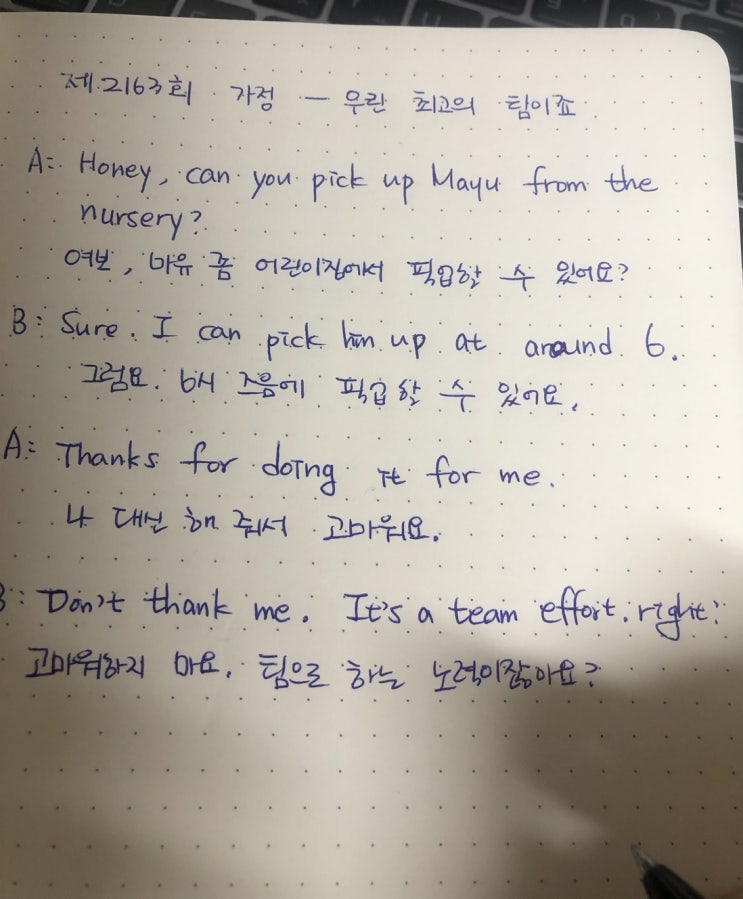 제.2163회 가정 — 우린 최고의 팀이죠
A: Honey, can you pick up Mayu from the
nursery?
여보, 마유 좀 어린이집에서 픽업할 수 있어요?
B: Sure. I can pick him up at around 6.
그럼요. 6시 즈음에 픽업할 수 있어요.
A: Thanks for doing it for me.
나 대신 해 줘서 고마워요.
B: Don't thank me. It's a team effort. right?
고마워하지 마요. 팀으로 하는 노력이잖아요?